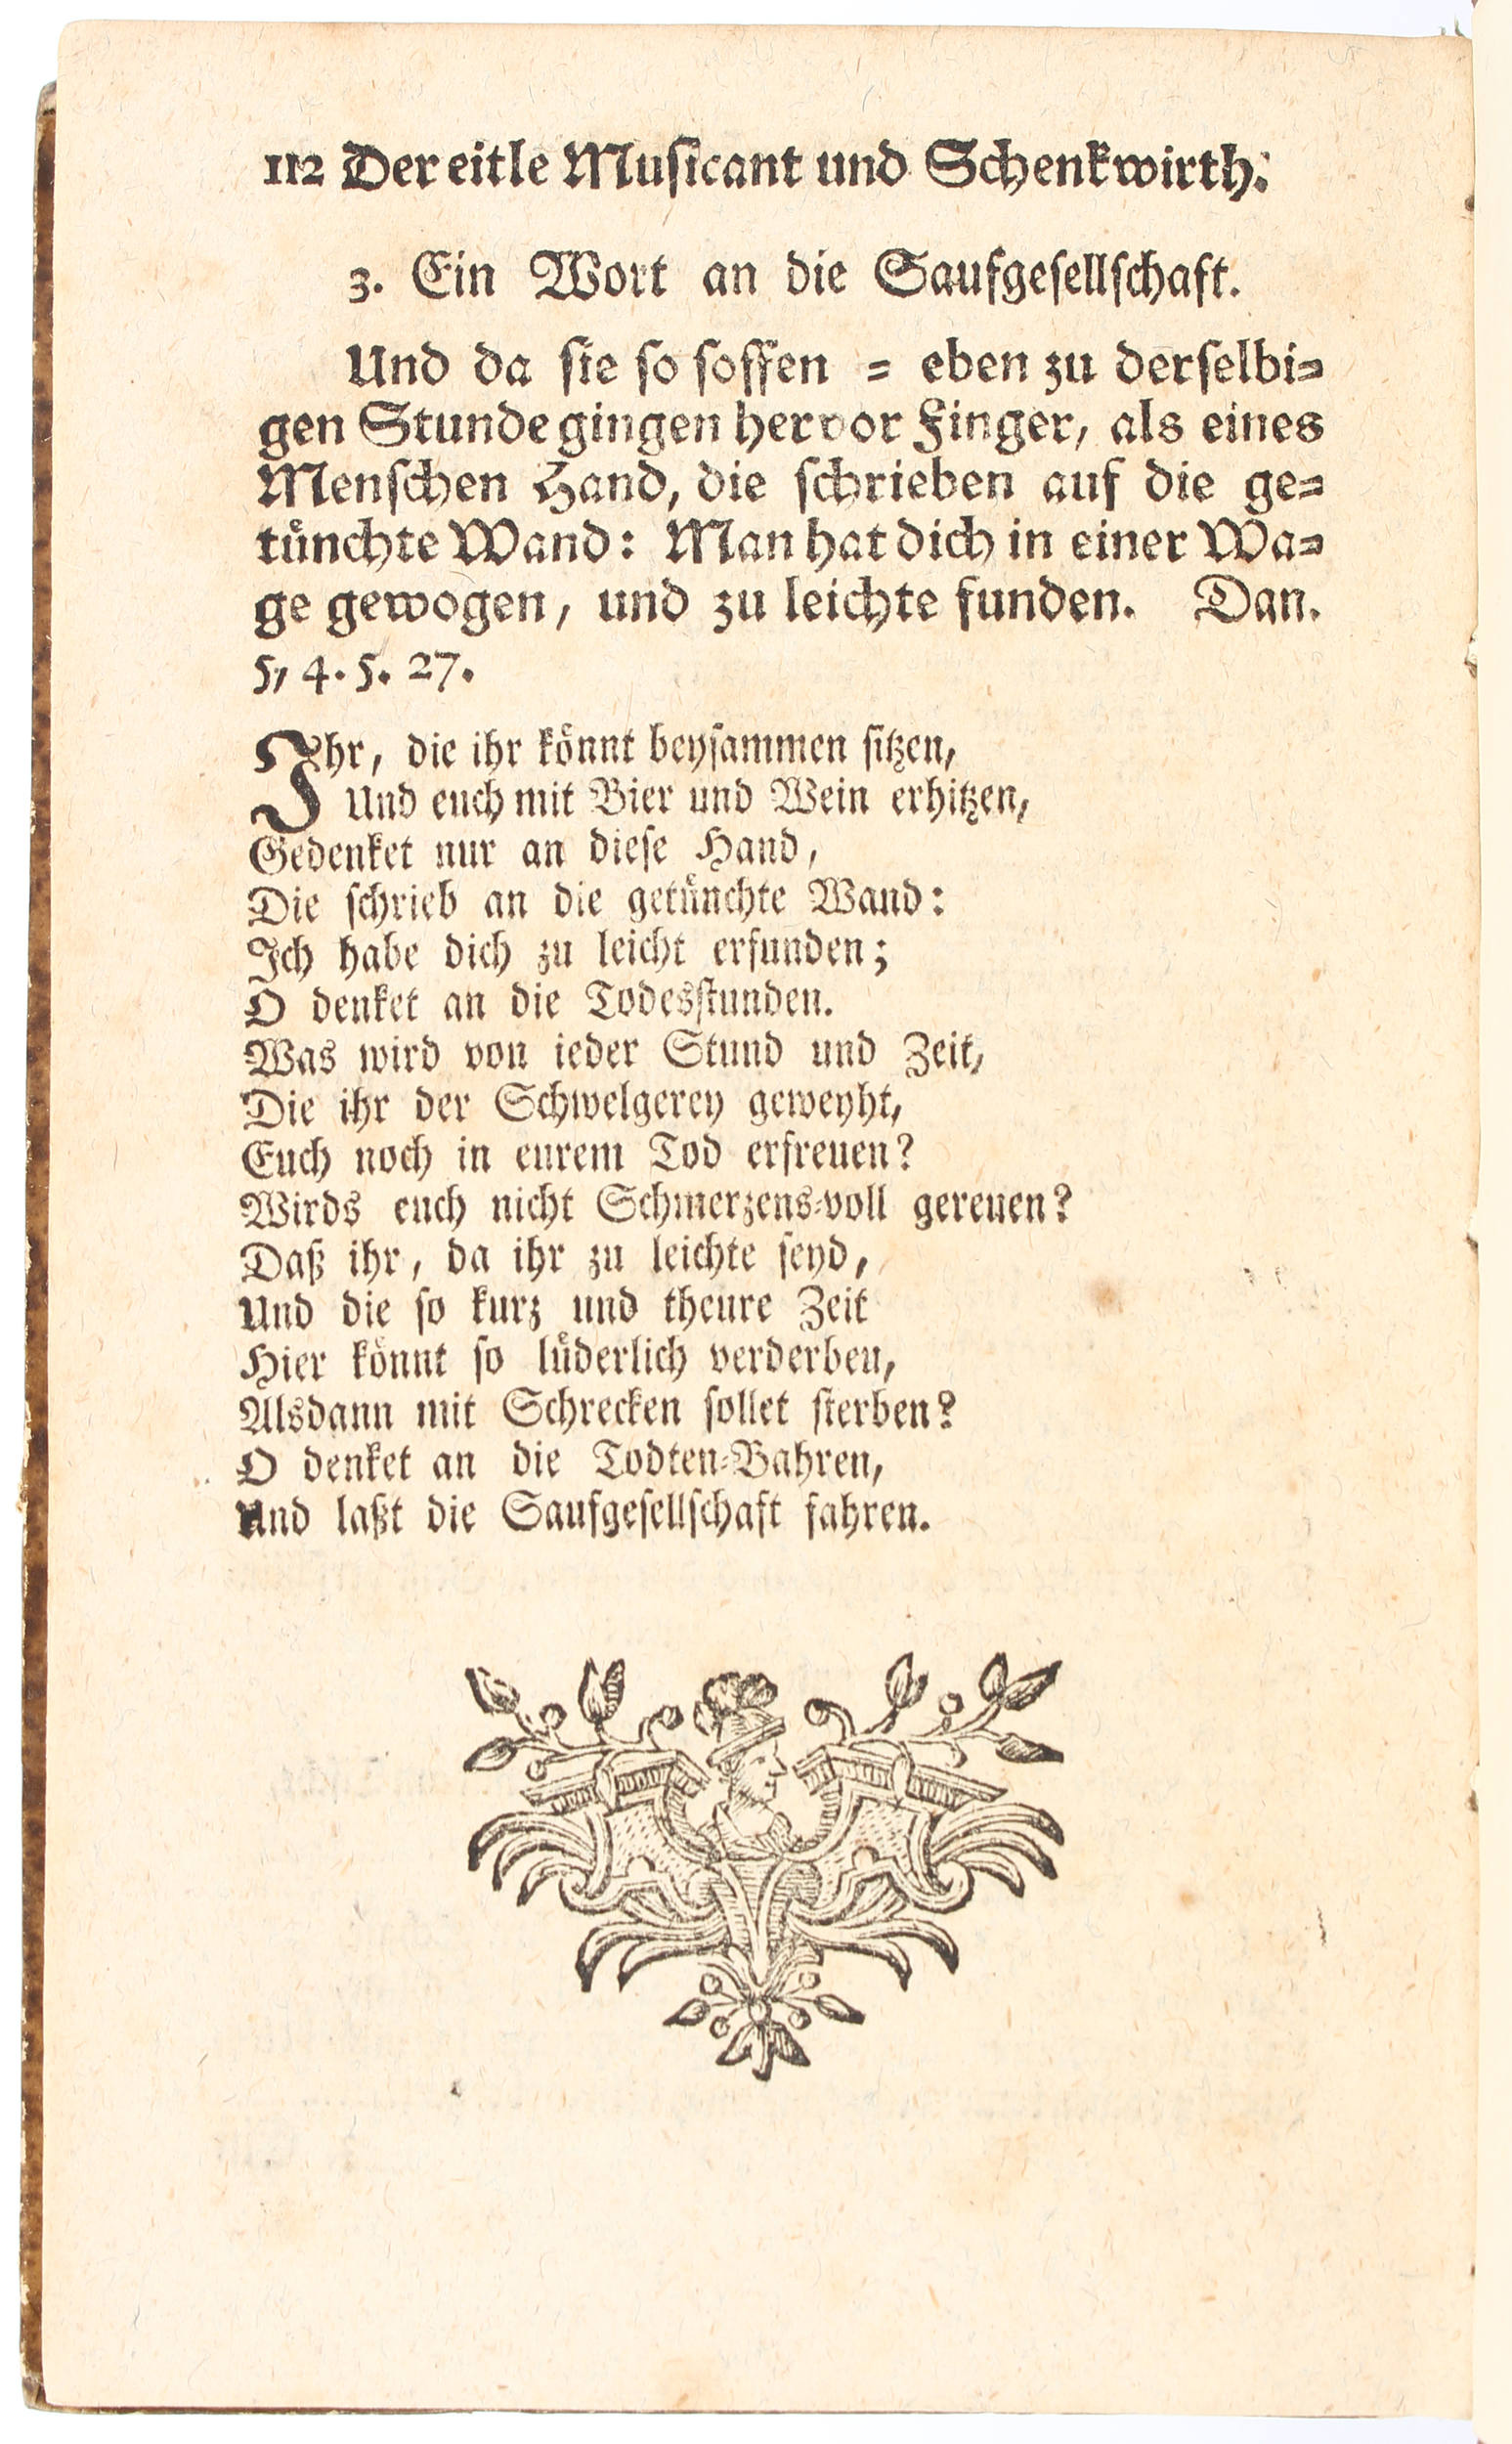 112 Der eitle Musicant und Schenkwirth.
3. Ein Wort an die Saufgesellschaft.
Und da sie so soffen = eben zu derselbi=
gen Stunde gingen hervor Finger, als eines
Menschen Hand, die schrieben auf die ge=
tünchte Wand: Man hat dich in einer Wa=
ge gewogen, und zu leichte funden. Dan.
5, 4. 5. 27.
Ihr, die ihr könnt beysammen sitzen,
Und euch mit Bier und Wein erhitzen,
Gedenket nur an diese Hand,
Die schrieb an die getünchte Wand:
Ich habe dich zu leicht erfunden;
O denket an die Todesstunden.
Was wird von ieder Stund und Zeit,
Die ihr der Schwelgerey geweyht,
Euch noch in eurem Tod erfreuen?
Wirds euch nicht Schmerzens=voll gereuen?
Daß ihr, da ihr zu leichte seyd,
Und die so kurz und theure Zeit
Hier könnt so lüderlich verderben,
Alsdann mit Schrecken sollet sterben?
O denket an die Todten=Bahren,
Und laßt die Saufgesellschaft fahren.